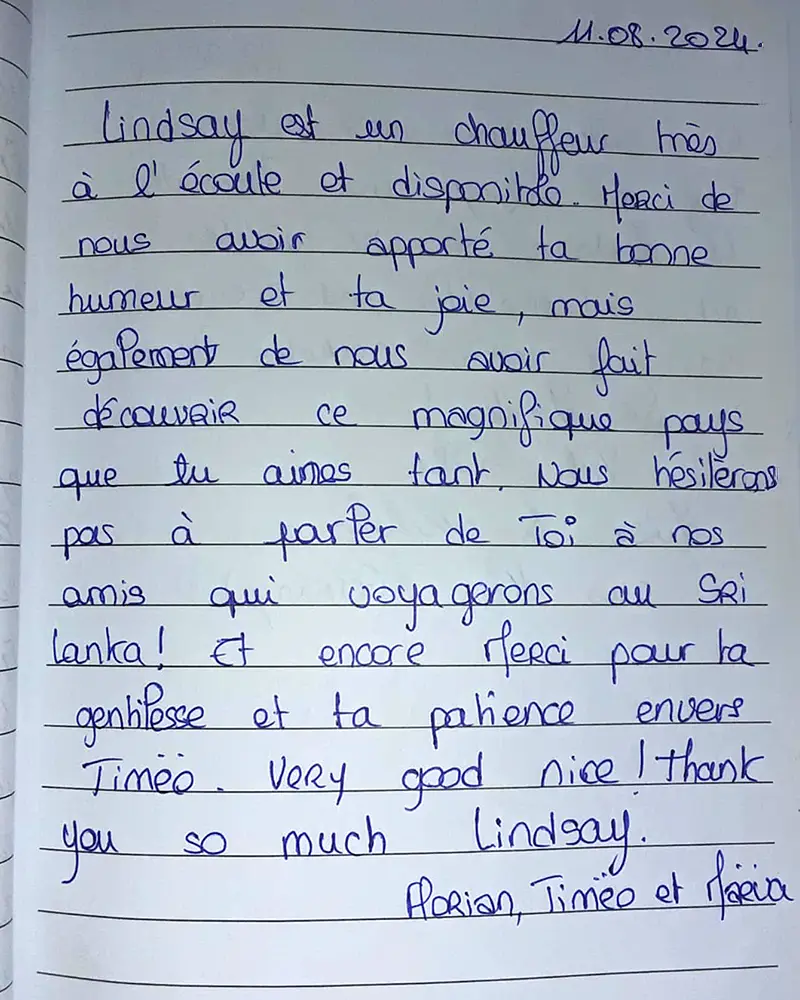 11.08.2024.
Lindsay est un chauffeur très
à l'écoute et disponible. Merci de
nous avoir apporté ta bonne
humeur et ta joie, mais
également de nous avoir fait
découvrir ce magnifique pays
que tu aimes tant. Nous hésiterons
pas à parler de Toi à nos
amis qui voyagerons au SRi
Lanka! Et encore Merci pour ta
gentillesse et ta patience envers
Timëo. VERY good nice! thank
you so much Lindsay.
Florian, Timëo et Maëva